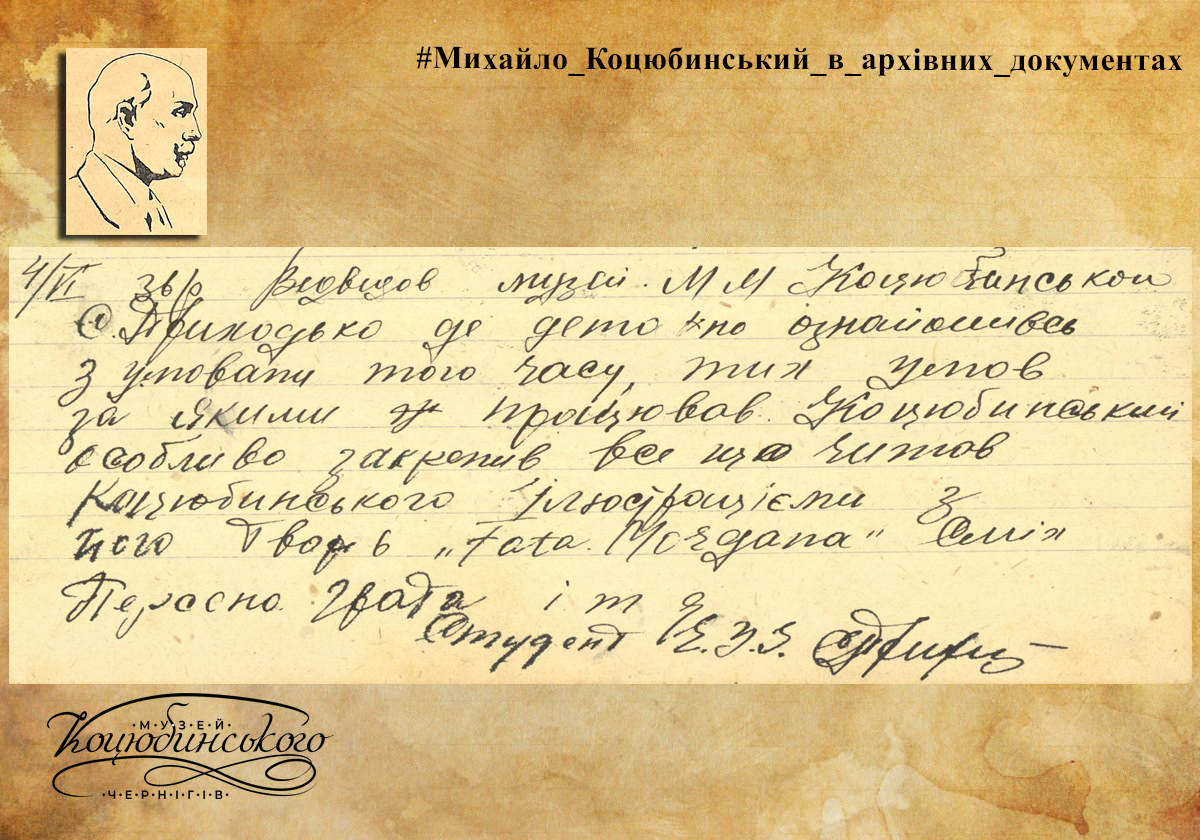 #Михайло_Коцюбинський_в_архівних_документах
4/VI 36 р Відвідов музей. М М Коцюбинськои
С. Приходько де дето ознайомивсь
з умовами того часу, тих умов
за якими працював Коцюбинський
особливо закрепив все що читов
Коцюбинського Ілюстраціеми з
його Творів „Fata Morgana" Сміх
Persona grата і т д
Студент
МУЗЕЙ
Коцюбинського
ЧЕРНІГІВ